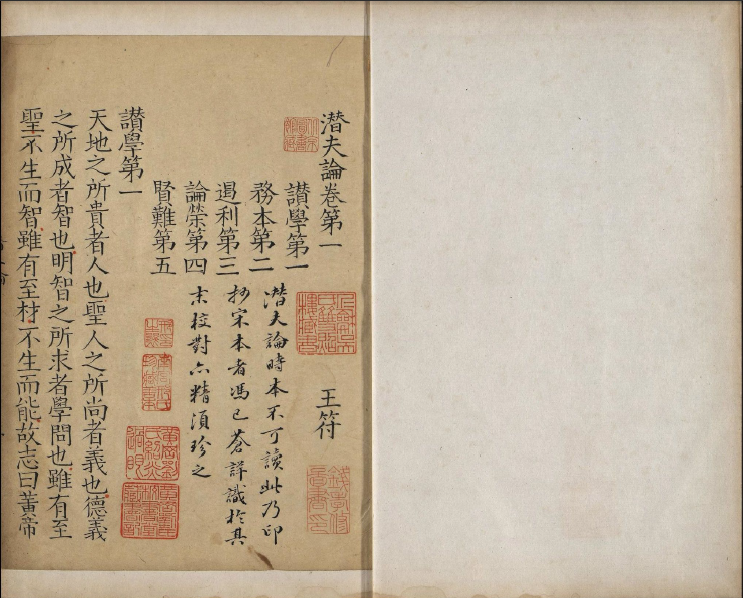 潛夫論卷第一
王符
讃學第一
務本第二
遏利第三
論榮第四
賢難第五
潛夫論時本不可讀此乃印
抄宋本者馮已蒼詳識於其
末校對六精湏珍之
讃學第一
天地之所貴者人也聖人之所尚者義也德義
之所成者智也明智之所求者學問也雖有至
聖不生而智雖有至材不生而能故志曰黃帝